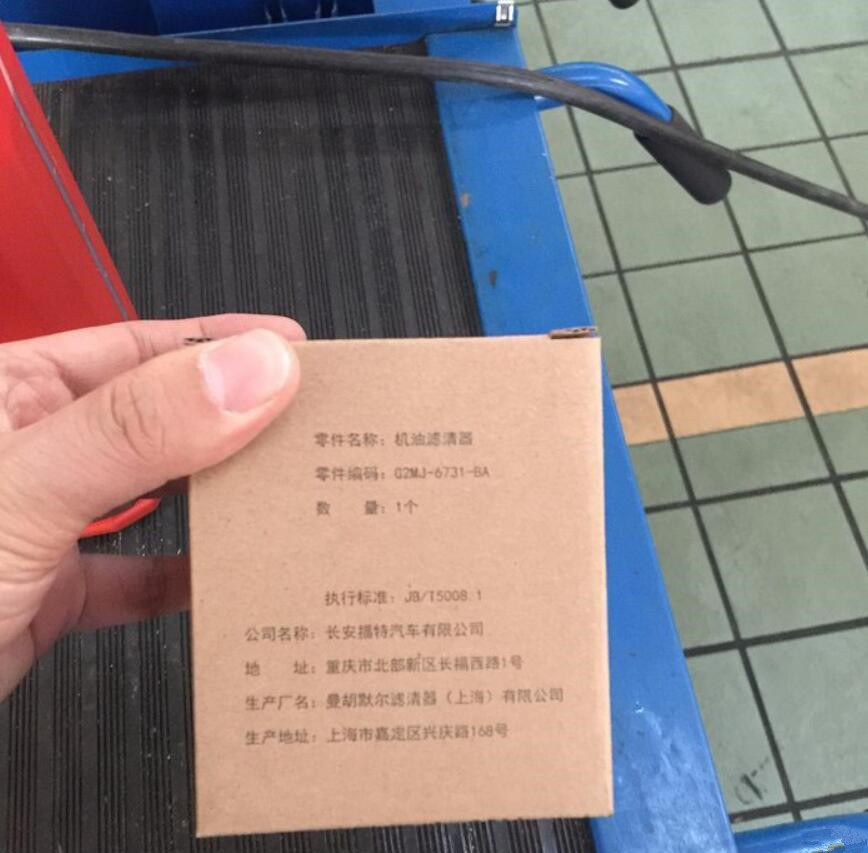 零件名称：机油滤清器
零件编码：G2MJ-6731-BA
数　　量：1个
执行标准：JB/T5008.1
公司名称：长安福特汽车有限公司
地　　址：重庆市北部新区长福西路1号
生产厂名：曼胡默尔滤清器（上海）有限公司
生产地址：上海市嘉定区兴庆路168号